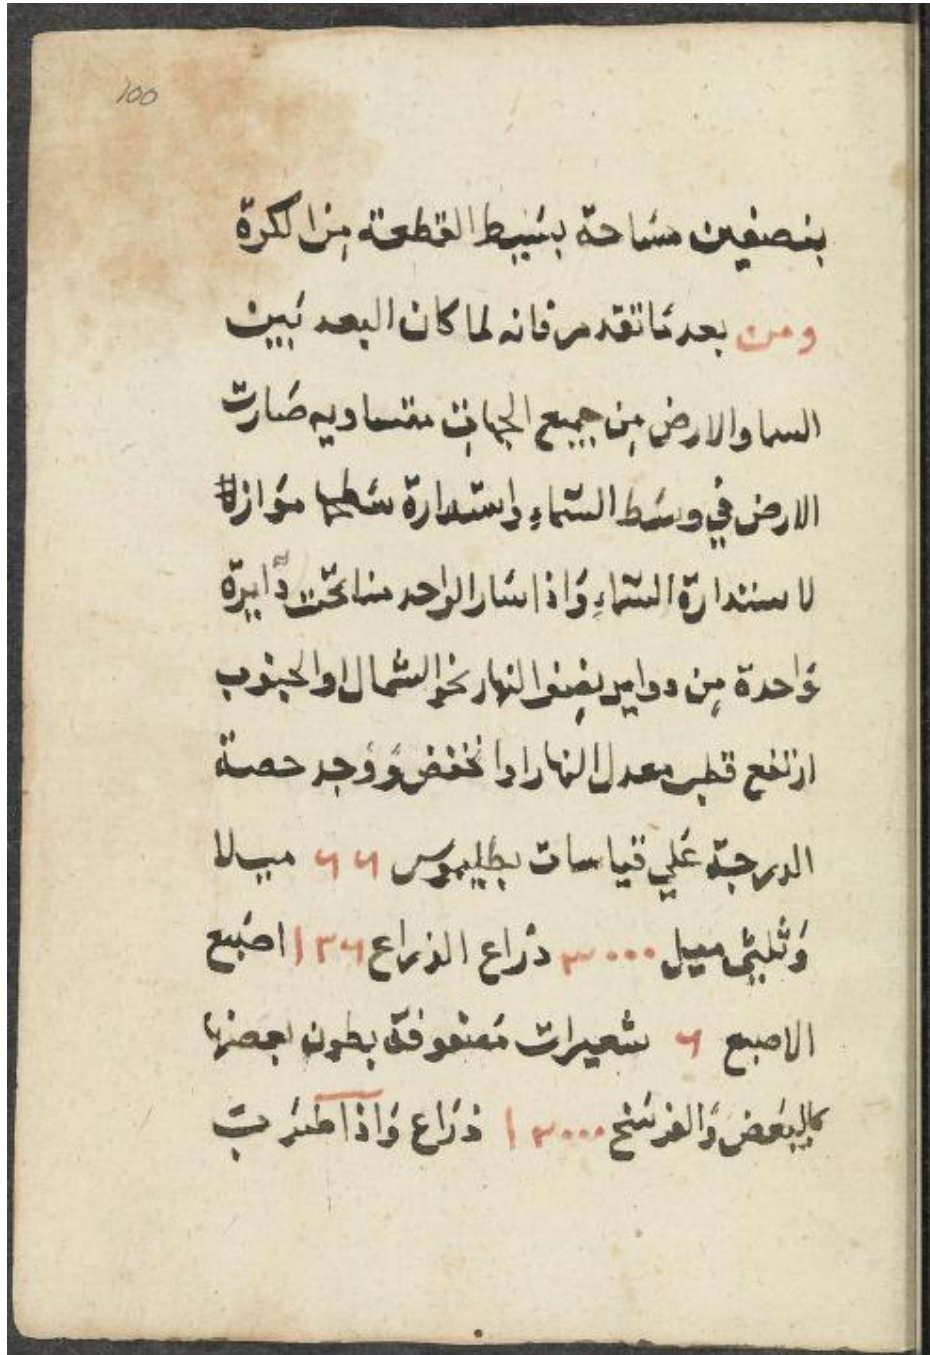 100
بنصفين مساحة بسيط القطعة من الكرة
ومن بعد ما تقدم فانه لما كان البعد بين
السما والارض من جميع الجهات متساويه صارت
الارض في وسط السماء واستدارة سطحها موازاة
لاستدارة السماء واذا سار الواحد منا تحت دايرة
واحدة من دواير نصف النهار نحو الشمال او الجنوب
ارتفع قطب معدل النهار او انخفض ووجد حصة
الدرجة علي قياسات بطليموس ٦٦ ميلا
وثلثي ميل ٣٠٠٠ ذراع الذراع ٣٦ ا اصبع
الاصبع ٦ شعيرات مصفوفة بطون بعضها
الي بعض والفرسخ ٣٠٠٠ ا ذراع واذا ضربت